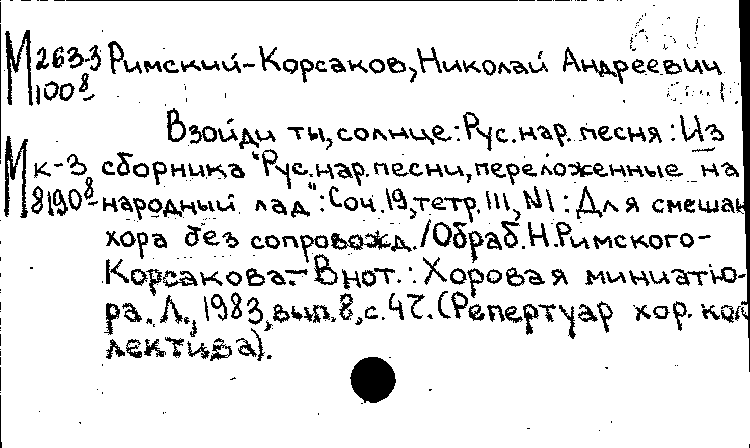 М 263-3 Римский-Корсаков, Николай Андреевич
100 8
Взойди ты, солнце: Рус. нар. песня: Из
М к-3 сборника "Рус. нар. песни, переложенные на
8190 8 народный лад": Соч. 19, тетр. III, N1: Для смешан
хора без сопровожд. /Обраб. Н. Римского-
Корсакова.- В нот.: Хоровая миниатю-
ра. Л., 1983, вып. 8, с.
(Репертуар хор. кол
лектива).